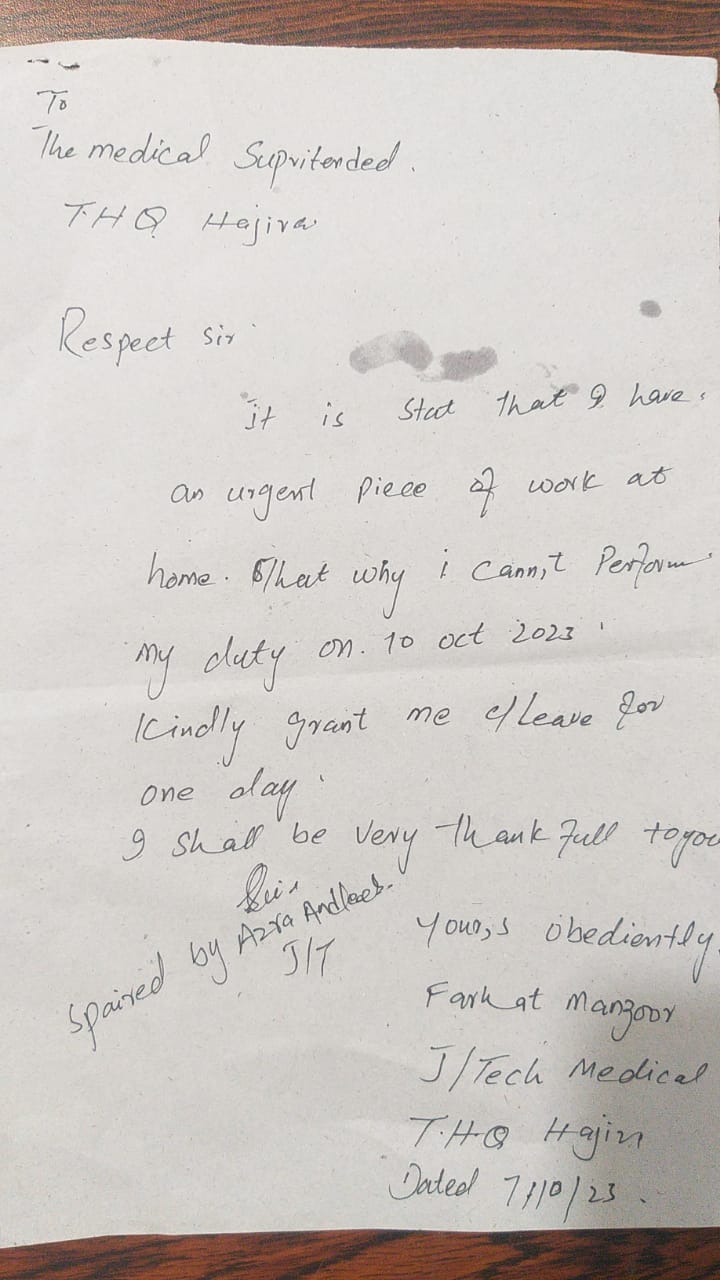 To
The medical Supritended.
T.H.Q Hajira
Respect sir
it is Stat that I have
an urgent piece of work at
home. That why i cann,t Perform
my duty on. 10 oct 2023
Kindly grant me c/Leave for
one day.
I shall be very thank full to you
Yours,s obediently
Farhat Manzoor
J/Tech Medical
T.H.Q Hajira
Dated 7/10/23.
spaired by Azra Andleeb.
J/T